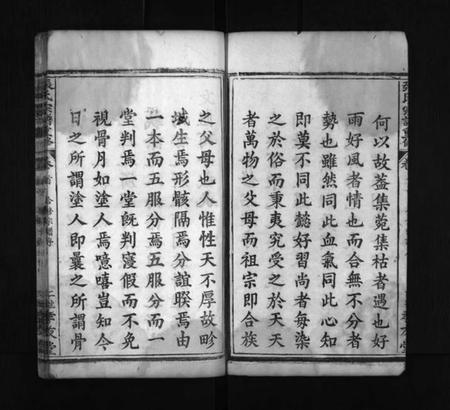 何以故蓋集菀集枯者遇也好
雨好風者情也而合無不分者
勢也雖然同此血氣同此心知
即莫不同此懿好習尚者每染
之於俗而秉夷究受之於天天
者萬物之父母而祖宗即合族
之父母也人惟性天不厚故畛
域生焉形骸隔焉分誼暌焉由
一本而五服分焉五服分而一
堂判焉一堂既判寖假而不免
視骨月如塗人焉噫嘻豈知今
日之所謂塗人即曩之所謂骨